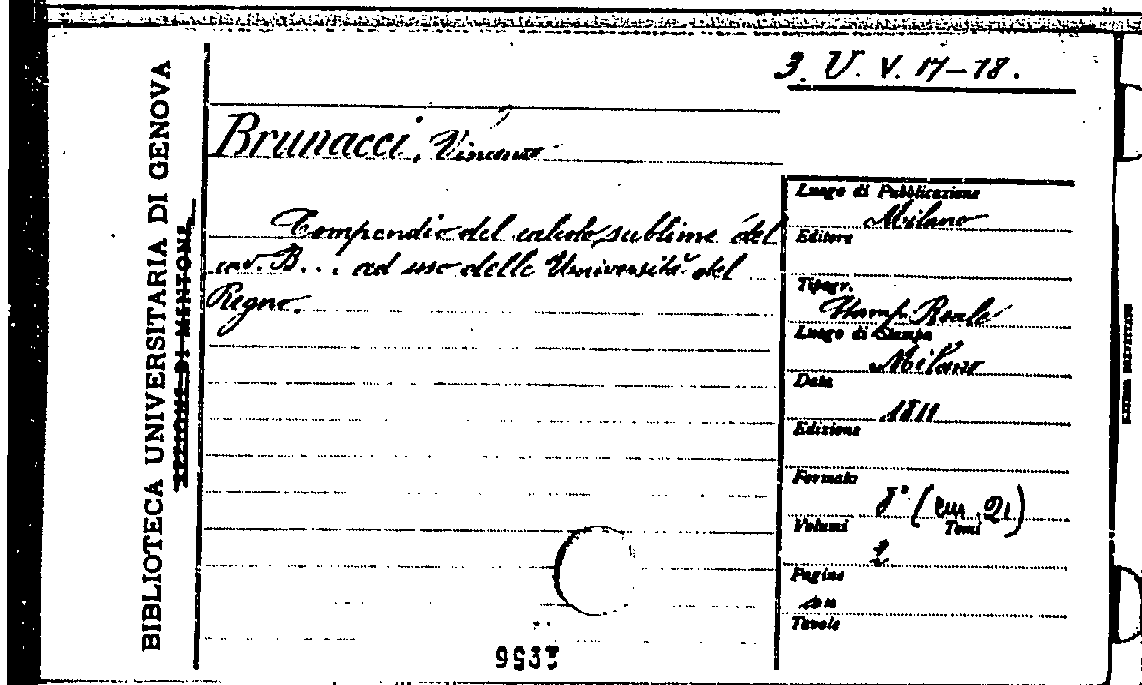 3. U. V. 17-18.
BIBLIOTECA UNIVERSITARIA DI GENOVA
SEZIONE DI MENTONE
Brunacci, Vincenzo
Compendio del calcolo sublime del
cav. B... ad uso delle Università del
Regno.
Luogo di Pubblicazione
Milano
Editore
Tipogr.
Stamp. Reale
Luogo di Stampa
Milano
Data
1811
Edizione
Formato
8° (cm. 21)
Volumi Tomi
2
Pagine
Tavole